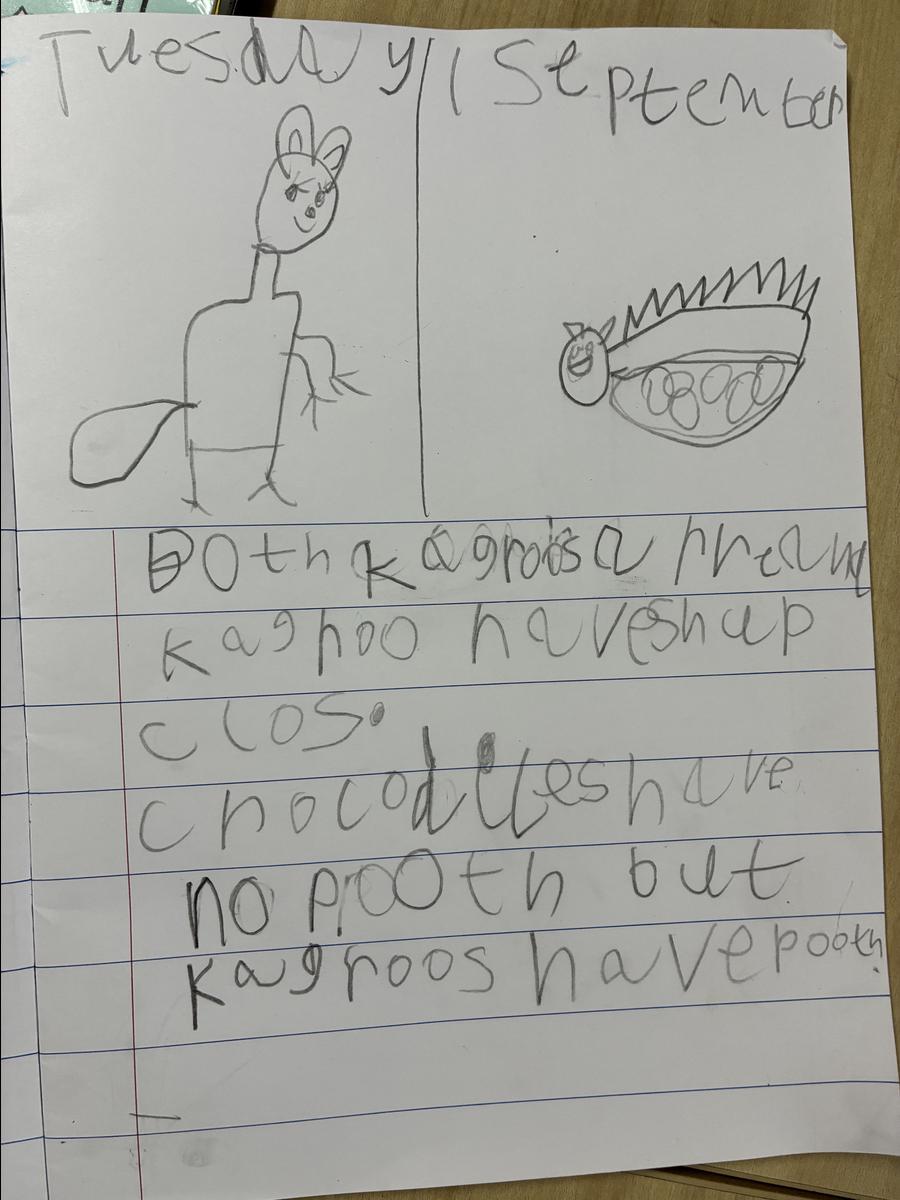 Tuesday 1 September
Both kagroos a
kagroo have shap
clos.
chocodiles have
no pooth but
kagroos have pooth.